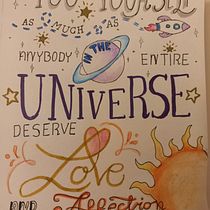 YOU YOURSELF
AS MUCH AS
ANYBODY IN THE ENTIRE
UNIVERSE
DESERVE
Love
AND Affection